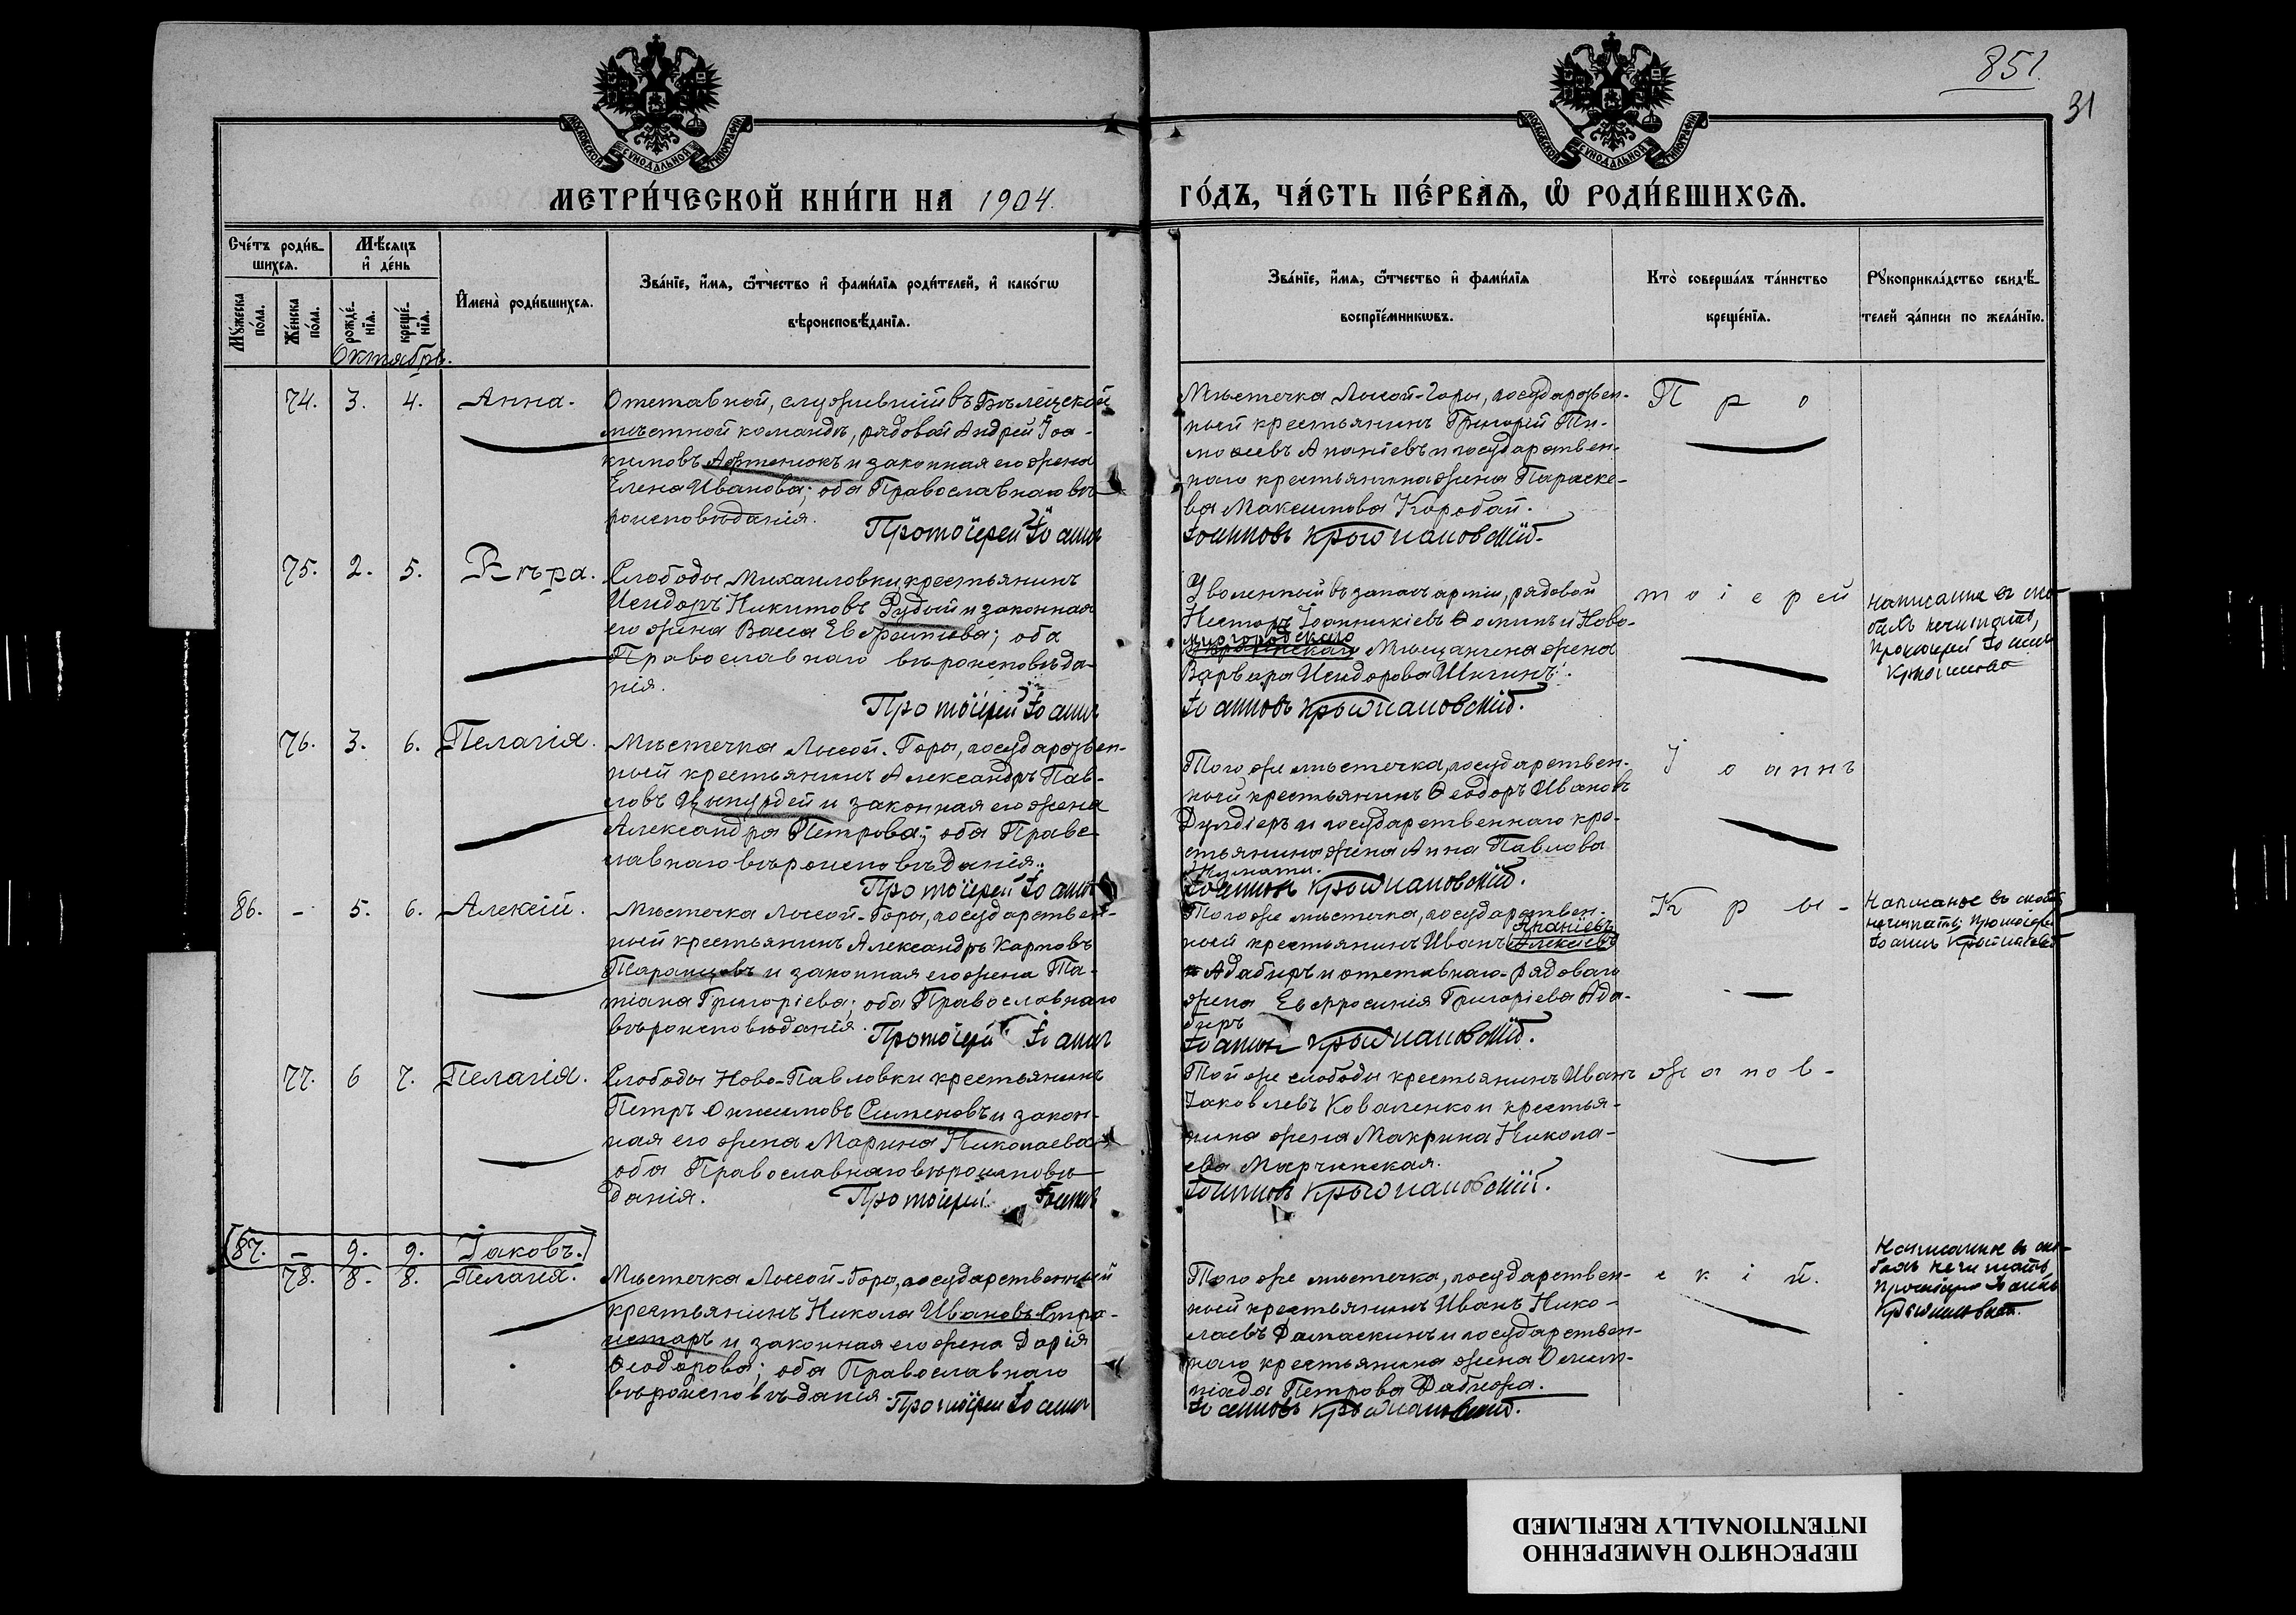 851
31
МОСКОВСКОЙ СѴНОДАЛЬНОЙ ТИПОГРАФІИ
МОСКОВСКОЙ СѴНОДАЛЬНОЙ ТИПОГРАФІИ
МЕТРИ́ЧЕСКОЙ КНИ́ГИ НА 1904.
ГО́ДЪ, ЧА́СТЬ ПЕ́РВАѦ, Ѡ҆ РОДИ́ВШИХСѦ.
Сче́тъ роди́в-
шихсѧ.
Мѣ́сѧцъ
и҆ де́нь
Мꙋ́жеска по́ла.
Же́нска по́ла.
рожде́-нїѧ.
креще́-нїѧ.
И҆мена̀ роди́вшихсѧ.
Зва́нїе, и҆́мѧ, ѻ҆́тчество и҆ фами́лїѧ роди́телей, и҆ како́гѡ
вѣроисповѣ́данїѧ.
Зва́нїе, и҆́мѧ, ѻ҆́тчество и҆ фами́лїѧ
воспрїе́мникѡвъ.
Кто̀ соверша́лъ та́инство
креще́нїѧ.
Рꙋкоприкла́дство свидѣ́-
телей за́писи по жела́нїю.
Октябрь.
74. 3. 4. Анна.
Отставной, служившій въ Бѣлецской
мѣстной командѣ, рядовой Андрей Іоа-
кимовъ и законная его жена
Елена Иванова; оба Православнаго вѣ-
роисповѣданія.
Протоіерей Іоаннъ
Мѣстечка Лысой-Горы, государствен-
ный крестьянинъ Григорій Ти-
моѳеевъ Ананіевъ и государствен-
наго крестьянина жена Параске-
ва Максимова Коробай.
Іоанновъ Крыжановскій.
П р о
75. 2. 5. Вѣра.
Слободы Михаиловки крестьянинъ
Исидоръ Никитовъ Рудый и законная
его жена Васса Евфимиева; оба
Православнаго вѣроисповѣда-
нія.
Протоіерей Іоаннъ
Уволенный въ запасъ арміи, рядовой
Несторъ Іоанникіевъ Ѳоминъ и Ново-
миргородскаго
Мѣщанина жена
Варвара Исидорова Шигинъ.
Іоанновъ Крыжановскій.
т о і е р е й
Написанное въ ско-
бахъ не читать,
Протоіерей Іоаннъ
76. 3. 6. Пелагія.
Мѣстечка Лысой-Горы, государствен-
ный крестьянинъ Александръ Пав-
ловъ и законная его жена
Александра Петрова; оба Право-
славнаго вѣроисповѣданія.
Протоіерей Іоаннъ
Того же мѣстечка, государствен-
ный крестьянинъ Ѳеодоръ Ивановъ
и государственнаго кре-
стьянина жена Анна Павлова
Іоаннъ Крыжановскій.
І о а н н ъ
86. - 5. 6. Алексій.
Мѣстечка Лысой-Горы, государствен-
ный крестьянинъ Александръ Карповъ
Таранцовъ и законная его жена Та-
тіана Григоріева; оба Православнаго
вѣроисповѣданія.
Протоіерей Іоаннъ
Того же мѣстечка, государствен-
Ананіевъ
ный крестьянинъ Иванъ (Алексіевъ)
Адабиръ и отставнаго рядоваго
жена Евфросинія Григоріева Ада-
биръ
Іоаннъ Крыжановскій.
К р ы -
Написаное въ скоб.
не читать; Протоіерей
Іоаннъ Крыжановскій
77. 6 7. Пелагія.
Слободы Ново-Павловки крестьянинъ
Петръ Онисимовъ Сименовъ и закон-
ная его жена Марина Николаева
оба Православнаго вѣроисповѣ-
данія.
Протоіерей Іоаннъ
Той же слободы крестьянинъ Иванъ
Іаковлевъ Коваленко и крестья-
нина жена Макрина Никола-
ева Марчинская.
Іоанновъ Крыжановскій.
ж а н о в -
(87. - 9. 9. Іаковъ.)
78. 8. 8. Пелагія.
Мѣстечка Лысой-Горы, государственный
крестьянинъ Никола Ивановъ Стро-
и законная его жена Дарія
Ѳеодорова; оба Православнаго
вѣроисповѣданія.
Протоіерей Іоаннъ
Того же мѣстечка, государствен-
ный крестьянинъ Иванъ Нико-
лаевъ Дамаскинъ и государствен-
наго крестьянина жена Олим-
піада Петрова Дабижа.
Іоанновъ Крыжановскій.
с к і й.
Написанное въ ско-
бахъ не читать
Протоіерей Іоаннъ
Крыжановскій.
ПЕРЕСНЯТО НАМЕРЕННО
INTENTIONALLY REFILMED